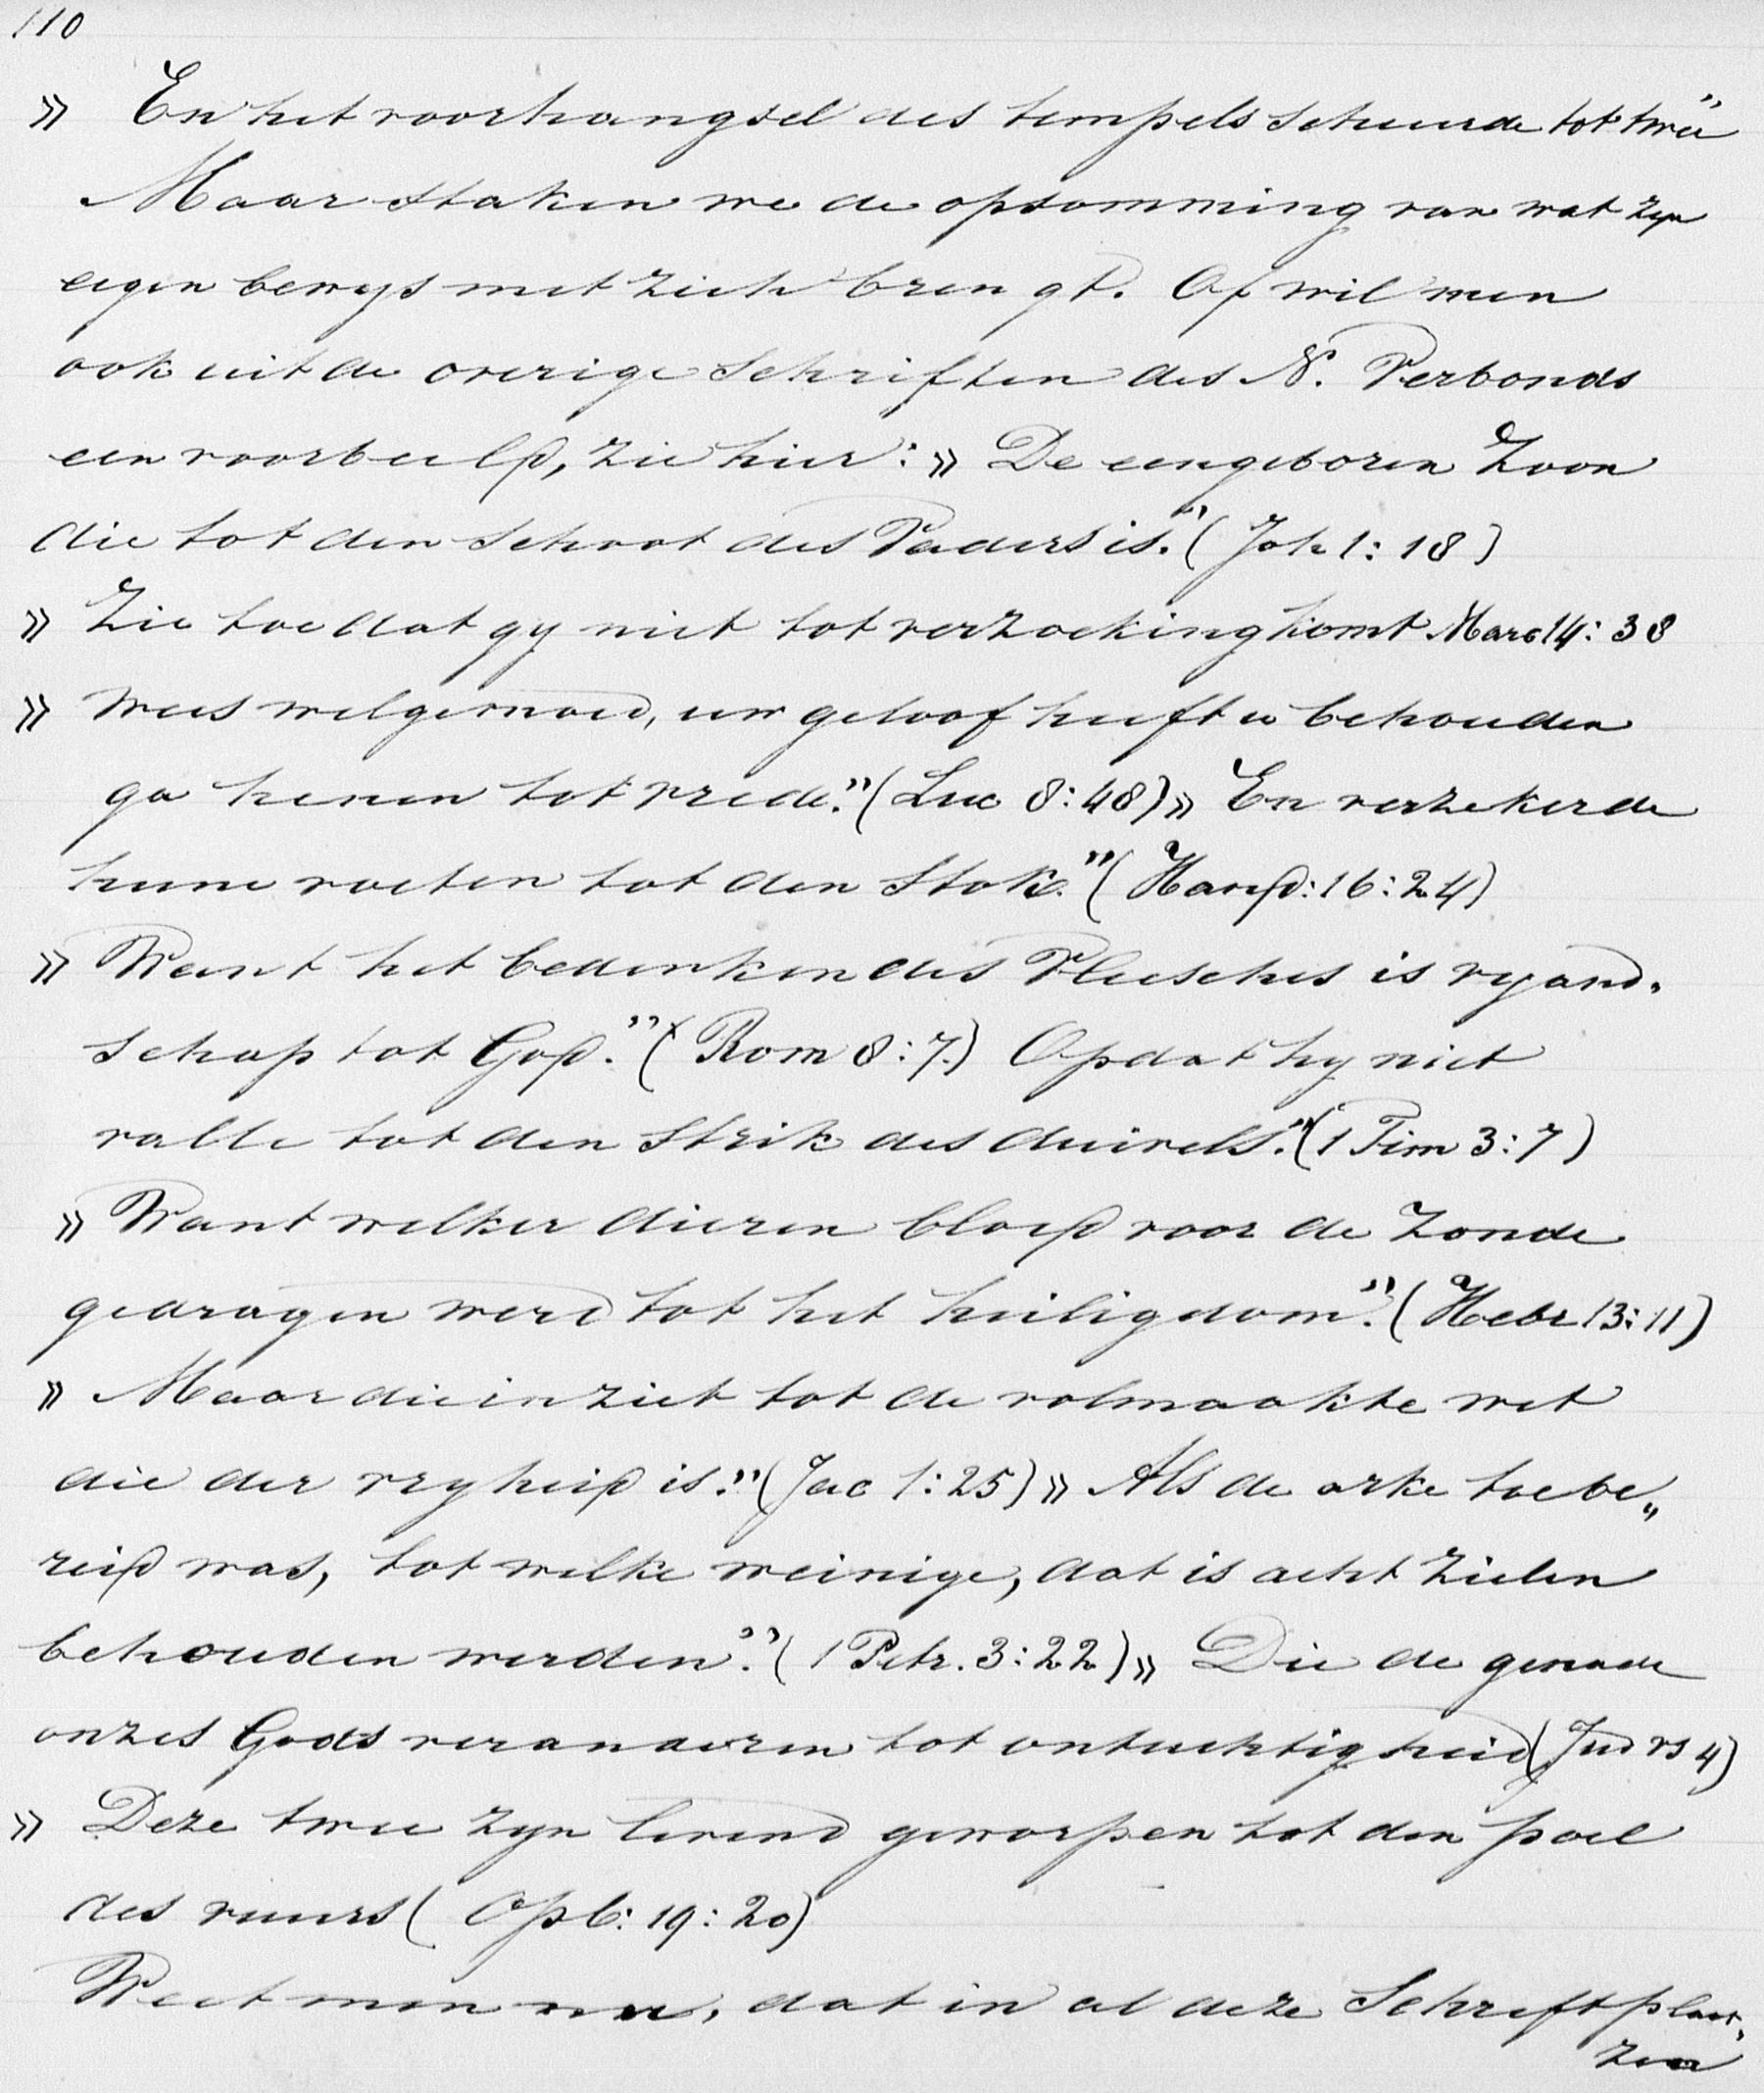 110
» En het voorhangsel des tempels scheurde tot twee"
Maar staken we de opsomming van wat zyn
eigen bewys met zich brengt. Of wil men
ook uit de overige Schriften des N. Verbonds
een voorbeeld, zie hier: » De eengeboren Zoon
die tot den schoot des Vaders is." (Joh 1: 18)
» Zie toe dat gy niet tot verzoeking komt Marc 14: 38
» Wees welgemoed, uw geloof heeft u behouden
ga henen tot vrede." (Luc 8:48) » En verzekerde
hune voeten tot den Stok." (Hand: 16: 24)
» Want het bedenken des Vleesches is vyand„
schap tot God." (Rom 8:7.) Opdat hy niet
valle tot den Strik des duivels." (1 Tim 3:7)
» Want welker dieren bloed voor de Zonde
gedragen werd tot het heiligdom." (Hebr 13:11)
» Maar die inziet tot de volmaakte wet
die der vryheid is." (Jac 1:25) » Als de arke toebe„
reid was, tot welke weinige, dat is acht Zielen
behouden werden." (1 Petr. 3:22) » Die de genade
onzes Gods veranderen tot ontuchtigheid (Jud vs 4)
» Deze twee zyn levend geworpen tot den poel
des vuurs (Opb: 19: 20)
Weet men nu, dat in al deze Schriftplaat„
zen